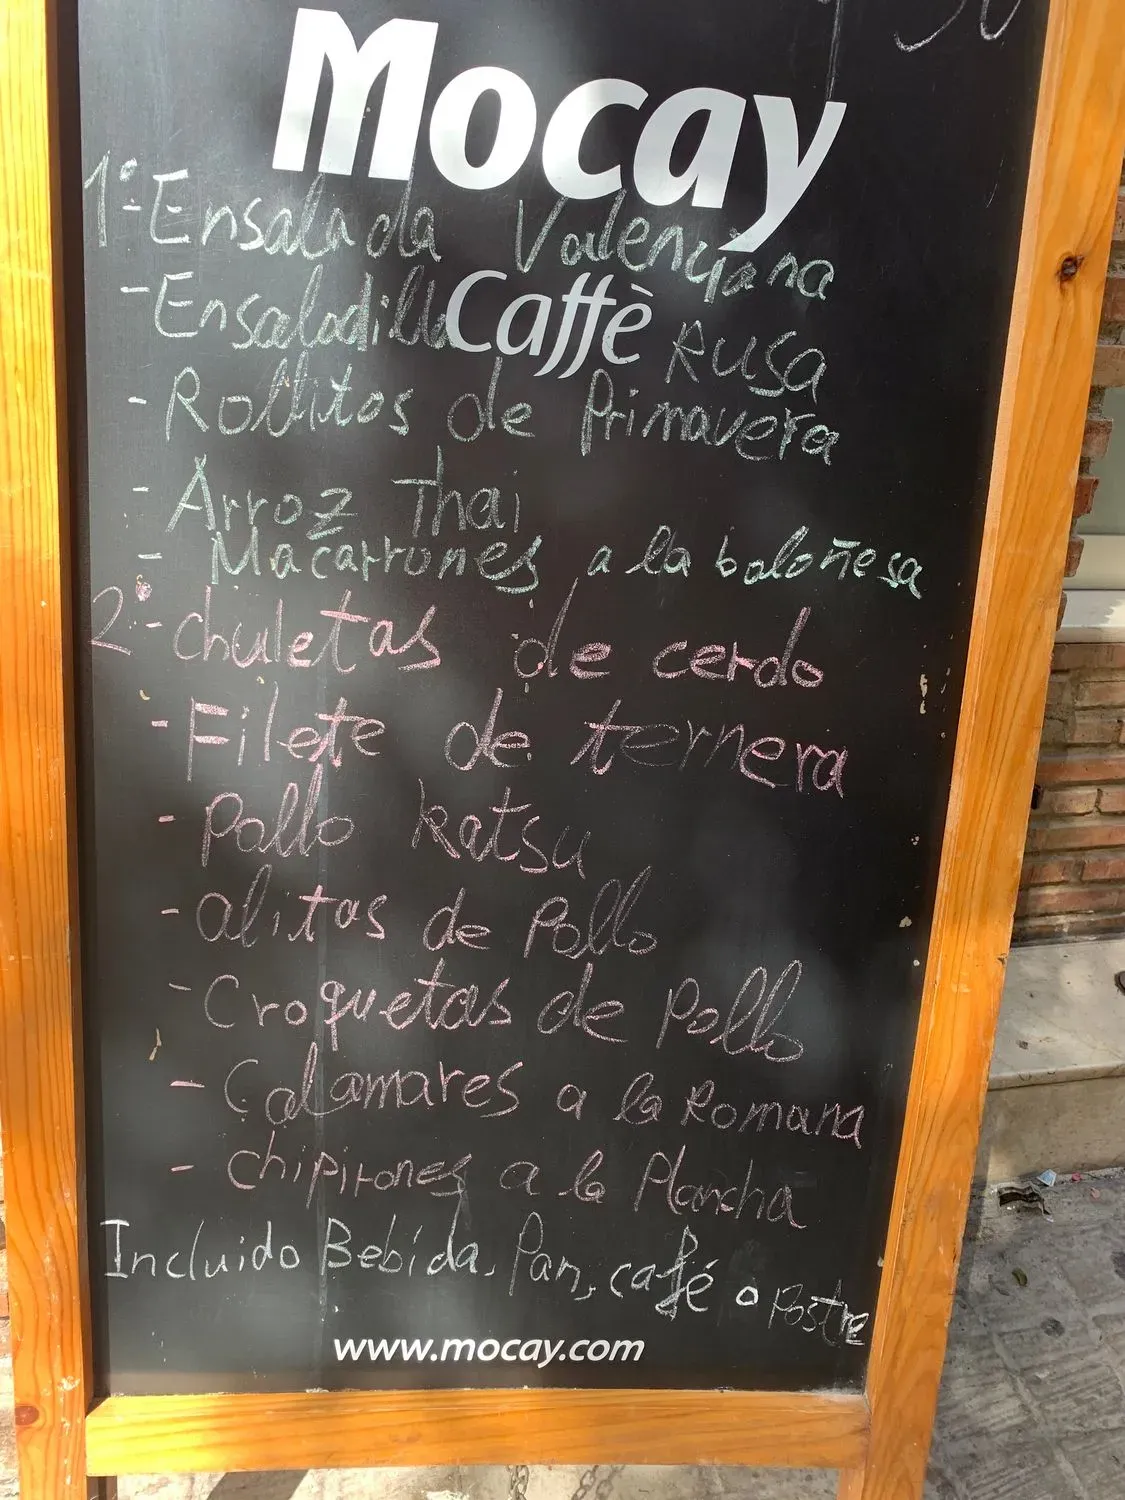 Mocay
Caffè
1º- Ensalada Valenciana
- Ensaladilla Rusa
- Rollitos de Primavera
- Arroz Thai
- Macarrones a la boloñesa
2º- chuletas de cerdo
- Filete de ternera
- Pollo Katsu
- alitas de Pollo
- Croquetas de Pollo
- Calamares a la Romana
- chipirones a la Plancha
Incluido Bebída, Pan, café o Postre
www.mocay.com